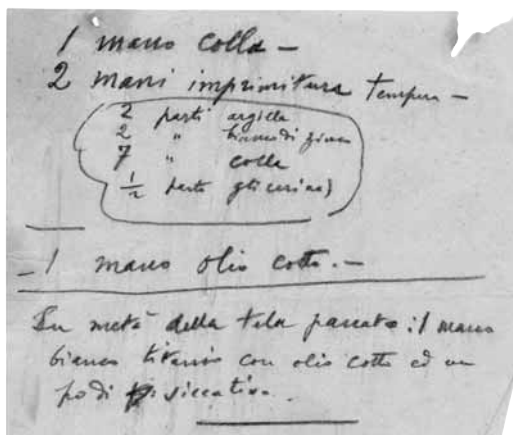 1 mano colla —
2 mani imprimitura tempera —
2 parti argilla
2 " bianco di zinco
7 " colla
1/2 parte glicerina)
— 1 mano olio cotto. —
Su metà della tela passata: 1 mano
bianco titanio con olio cotto ed un
po di siccativo.